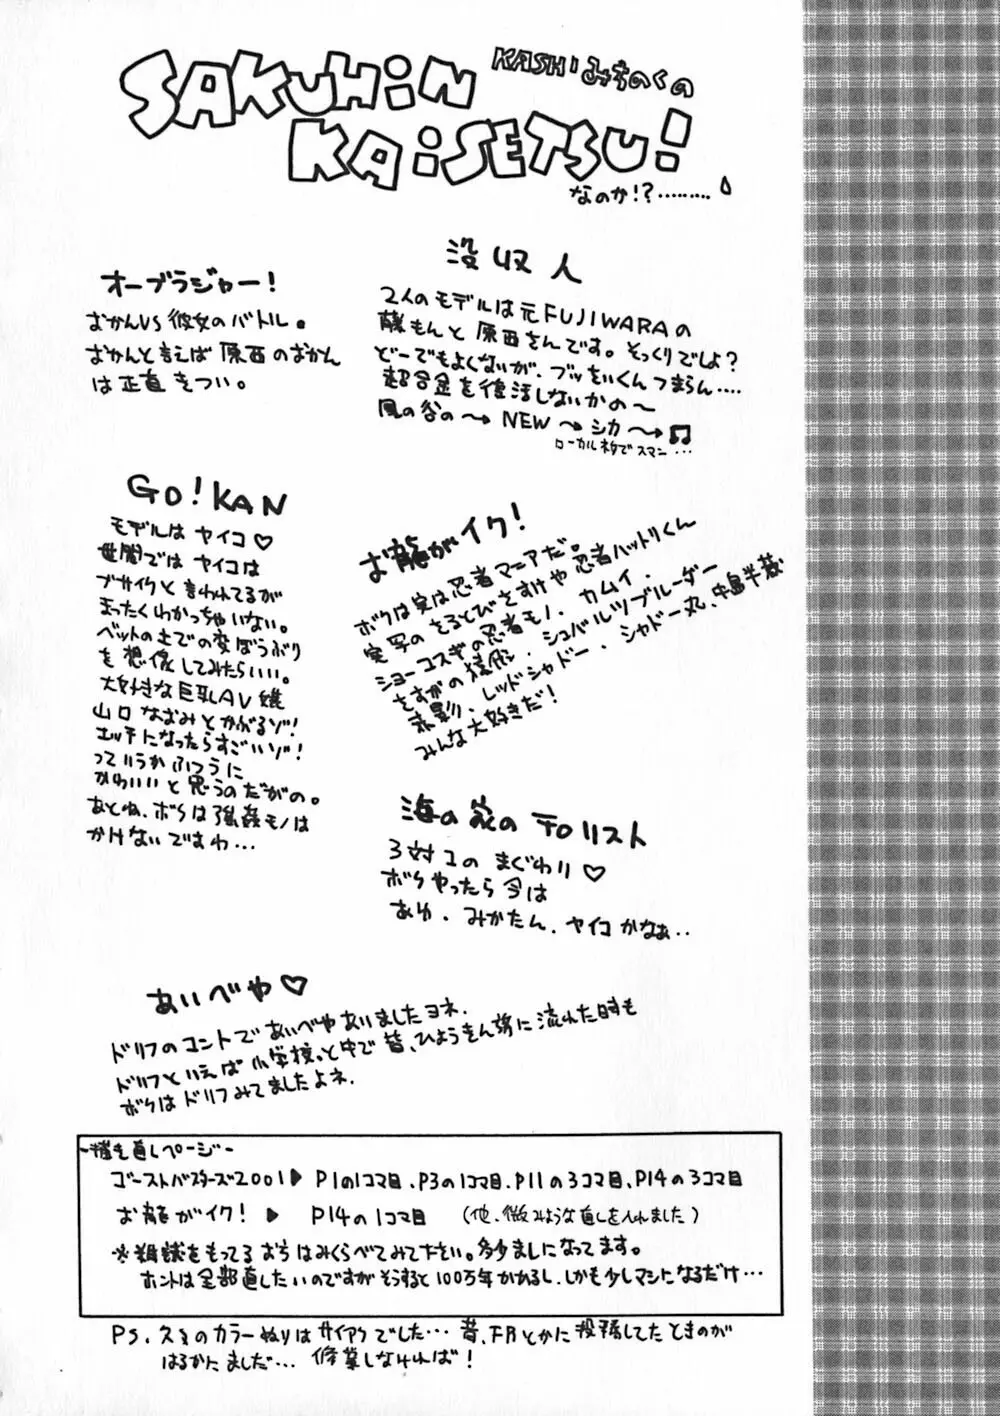 SAKUHiN
KASHIみちのくの
KAiSETSU!
なのか!?………
没収人
2人のモデルは元FUJIWARAの
藤もんと原西さんです。そっくりでしょ?
どーでもよくないが、ブッちぃくんつまらん‥‥
超合金を復活しないかの〜
風の谷の〜→NEW〜シカ〜→♫
ローカルネタでスマン…
オーブラジャー!
おかんVS彼女のバトル。
おかんと言えば原西のおかん
は正直きつい。
GO!KAN
モデルはヤイコ♡
世間ではヤイコは
ブサイクと言われてるが
まったくわかっちゃいない。
ベットの上での変ぼうぶり
を想像してみたらいい。
大好きな巨乳AV嬢
山口なおみとかがるゾ!
エッチになったらすごいゾ!
っていうかふつうに
かわいいと思うのだがの。
あとね、ボクは強姦モノは
かけないですわ…
お龍がイク!
ボクは実は忍者マニアだ。
実写のさるとびさすけや忍者ハットリくん
ショーコスギの忍者モノ、カムイ、
さすがの猿飛、シュバルツブルーダー
赤影、レッドシャドー、シャドー丸、中島半蔵
みんな大好きだ!
海の家のテロリスト
3対1のまぐわり♡
ボクやったら今は
あゆ、みかたん、ヤイコかなぁ‥
あいべや♡
ドリフのコントであいべやありましたヨネ。
ドリフといえば小学校と中で昔、ひょうきん族に流れた時も
ボクはドリフみてましたよネ。
-描き直しページ-
ゴーストバスターズ2001▶P1の1コマ目、P3の1コマ目、P11の3コマ目、P14の3コマ目
お龍がイク!▶P14の1コマ目(他、微みような直しを入れました)
※雑誌をもってるおちはみくらべてみて下さい。多少ましになってます。
ホントは全部直したいのですがそうすると100万年かかるし、しかも少しマシになるだけ…
PS、久々のカラーぬりはサイアクでした…昔、FRとかに投稿してたときのが
はるかにましだ…修業しなければ!